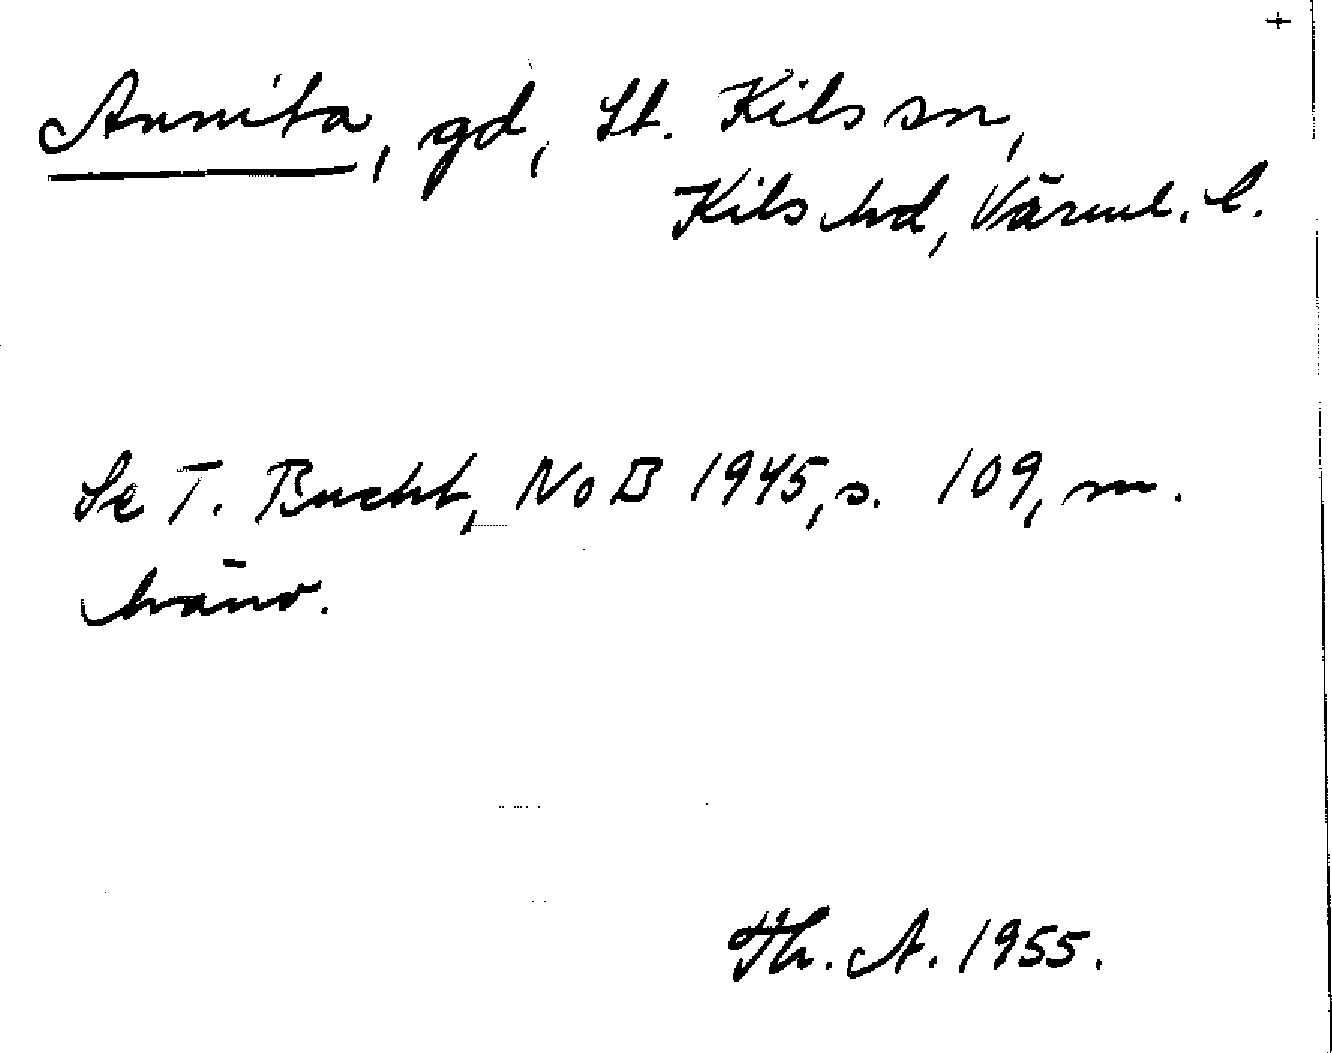 Annita, gd, St. Kils sn,
Kils hd, Värml. l.
Se T. Bucht, NoB 1945, s. 109, m.
hänv.
Th. A. 1955.